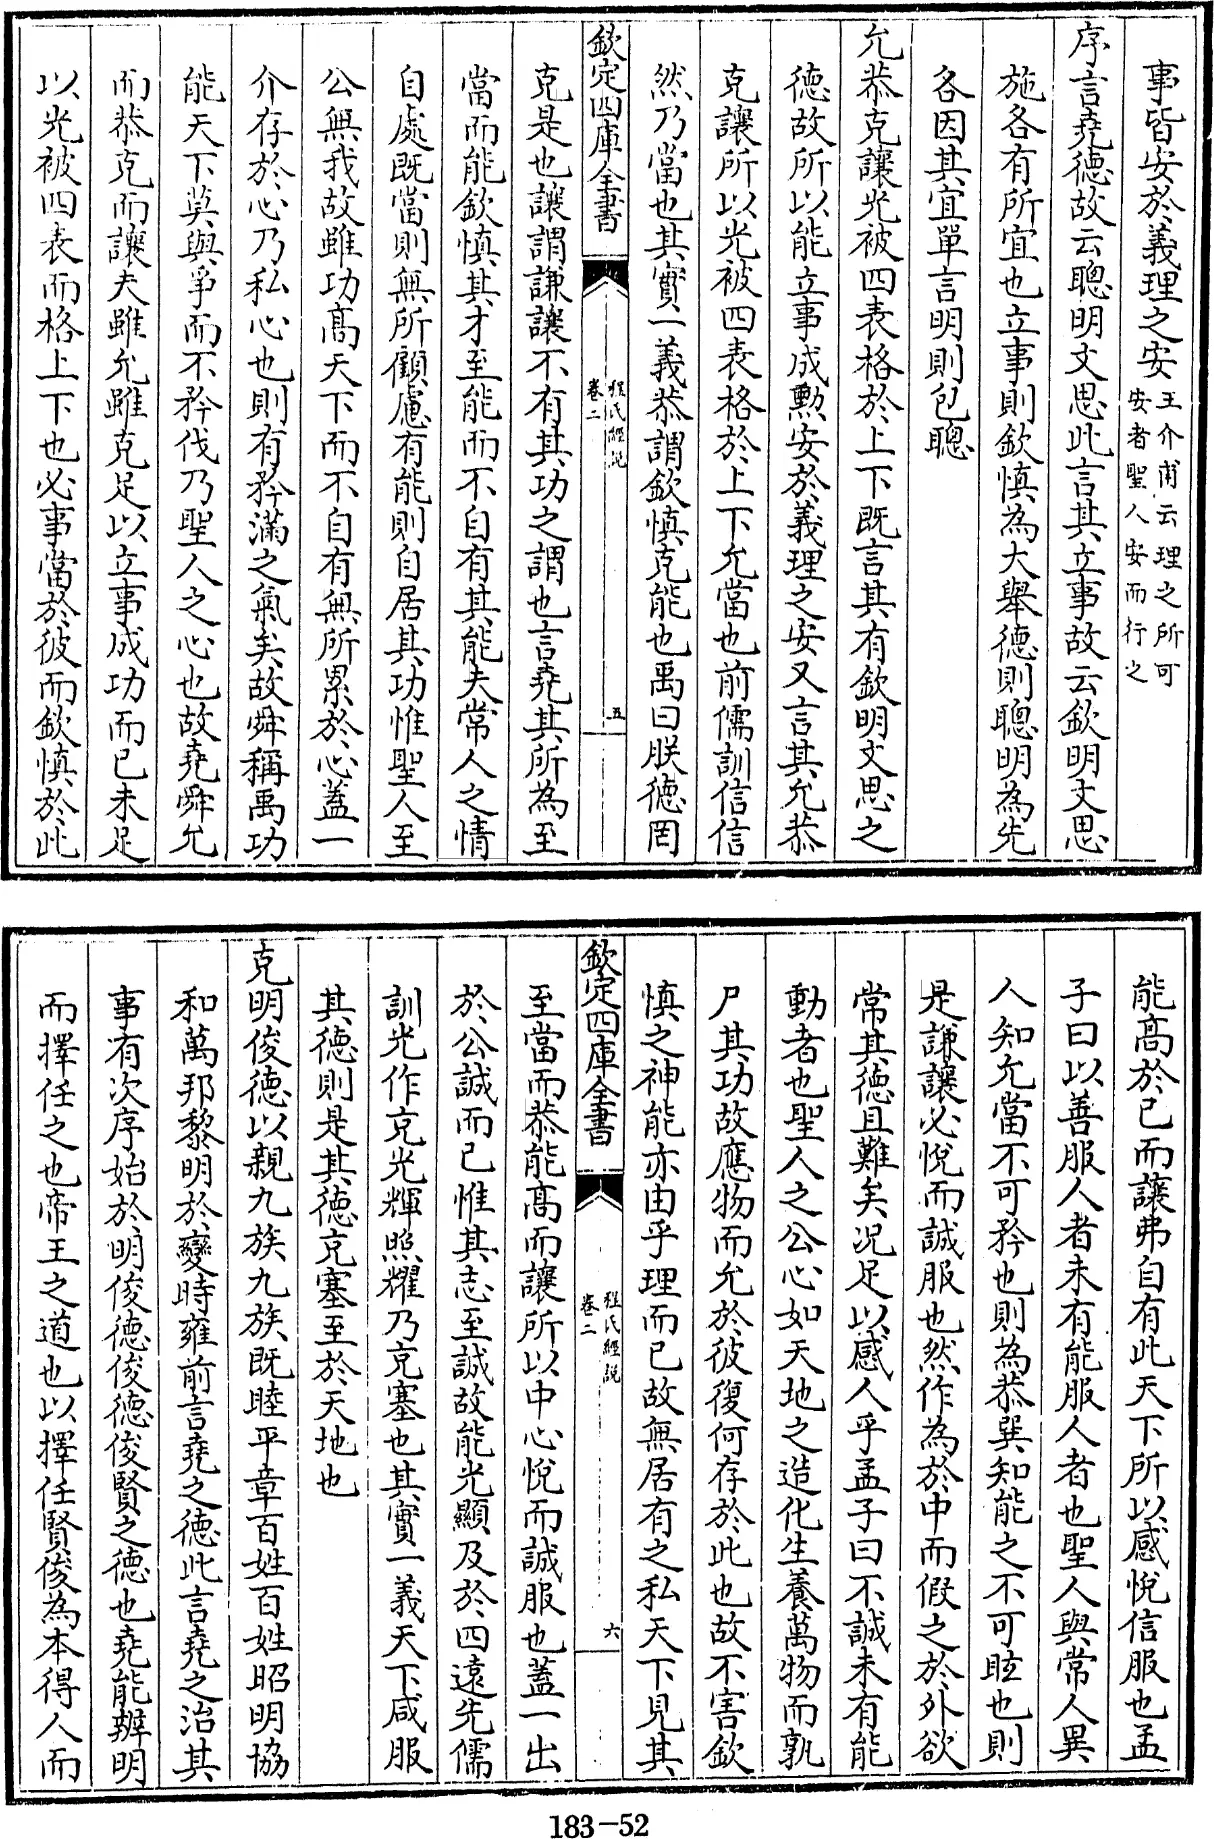 事皆安於義理之安王介甫云理之所可
安者聖人安而行之
序言堯德故云聰明文思此言其立事故云欽明文思
施各有所宜也立事則欽慎為大舉德則聰明為先
各因其宜單言明則包聰
允恭克讓光被四表格於上下既言其有欽明文思之
德故所以能立事成勲安於義理之安又言其允恭
克讓所以光被四表格於上下允當也前儒訓信信
然乃當也其實一義恭謂欽慎克能也禹曰朕德罔
欽定四庫全書
程氏經說
卷二
五
克是也讓謂謙讓不有其功之謂也言堯其所為至
當而能欽慎其才至能而不自有其能夫常人之情
自處既當則無所顧慮有能則自居其功惟聖人至
公無我故雖功高天下而不自有無所累於心蓋一
介存於心乃私心也則有矜滿之氣矣故舜稱禹功
能天下莫與爭而不矜伐乃聖人之心也故堯舜允
而恭克而讓夫雖允雖克足以立事成功而已未足
以光被四表而格上下也必事當於彼而欽慎於此
能高於己而讓弗自有此天下所以感悅信服也孟
子曰以善服人者未有能服人者也聖人與常人異
人知允當不可矜也則為恭巽知能之不可眩也則
是謙讓必悅而誠服也然作為於中而假之於外欲
常其德且難矣况足以感人乎孟子曰不誠未有能
動者也聖人之公心如天地之造化生養萬物而孰
尸其功故應物而允於彼復何存於此也故不害欽
慎之神能亦由乎理而已故無居有之私天下見其
欽定四庫全書
程氏經說
卷二
六
至當而恭能高而讓所以中心悅而誠服也蓋一出
於公誠而已惟其志至誠故能光顯及於四遠先儒
訓光作充光輝照耀乃充塞也其實一義天下咸服
其德則是其德充塞至於天地也
克明俊德以親九族九族既睦平章百姓百姓昭明協
和萬邦黎明於變時雍前言堯之德此言堯之治其
事有次序始於明俊德俊德俊賢之德也堯能辨明
而擇任之也帝王之道也以擇任賢俊為本得人而
183-52